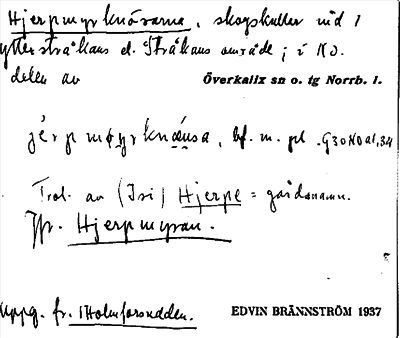 Hjerpmyrknösarna, skogskullar vid /
ytterstråkans el. Stråkans område; i NO.
delen av
Överkalix sn o. tg Norrb. l.
bf. m. pl.
Trol. av (Isi) Hjerpe = gårdsnamn.
Jfr. Hjerpmyran.
Uppg. fr. Holmforsudden.
EDVIN BRÄNNSTRÖM 1937